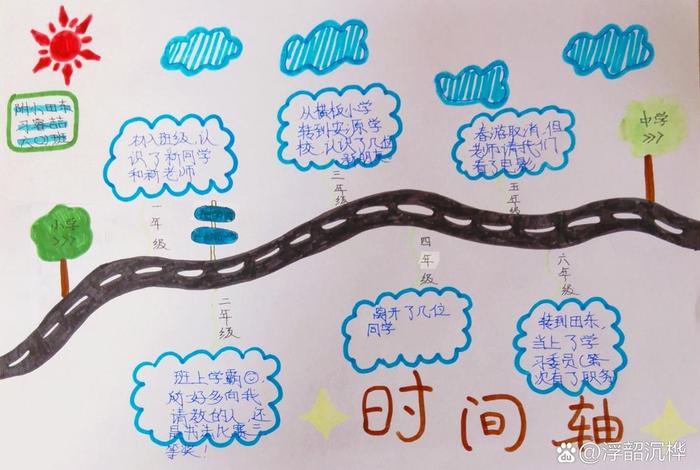 附小田东
六〇班
林入班级,认
识了新同学
和新老师
一年级
从横板小学
转到安源学
校,认识了几位
三年级
春游取消,但
老师请我们
看了电影
五年级
中学
>>>
小学
>>>
二年级
班上学霸
所以好多向我
请教的人,还
是书法比赛三
等奖!
四年级
离开了几位
同学
六年级
转到田东,
当上了学
习委员(第一
次有了职务
时间轴
浮韶沉桦